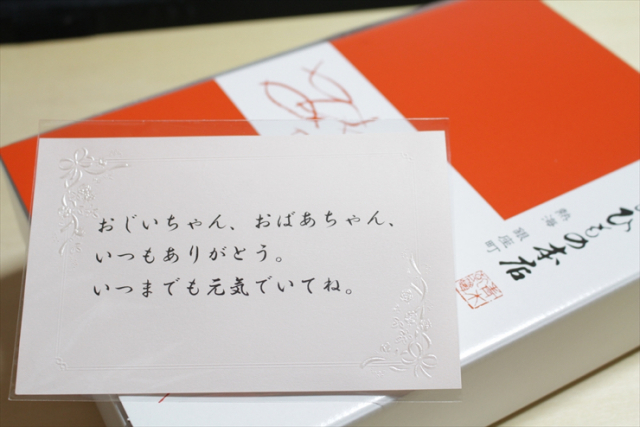 おじいちゃん、おばあちゃん、
いつもありがとう。
いつまでも元気でいてね。
ひもの本店
熱海 銀座町